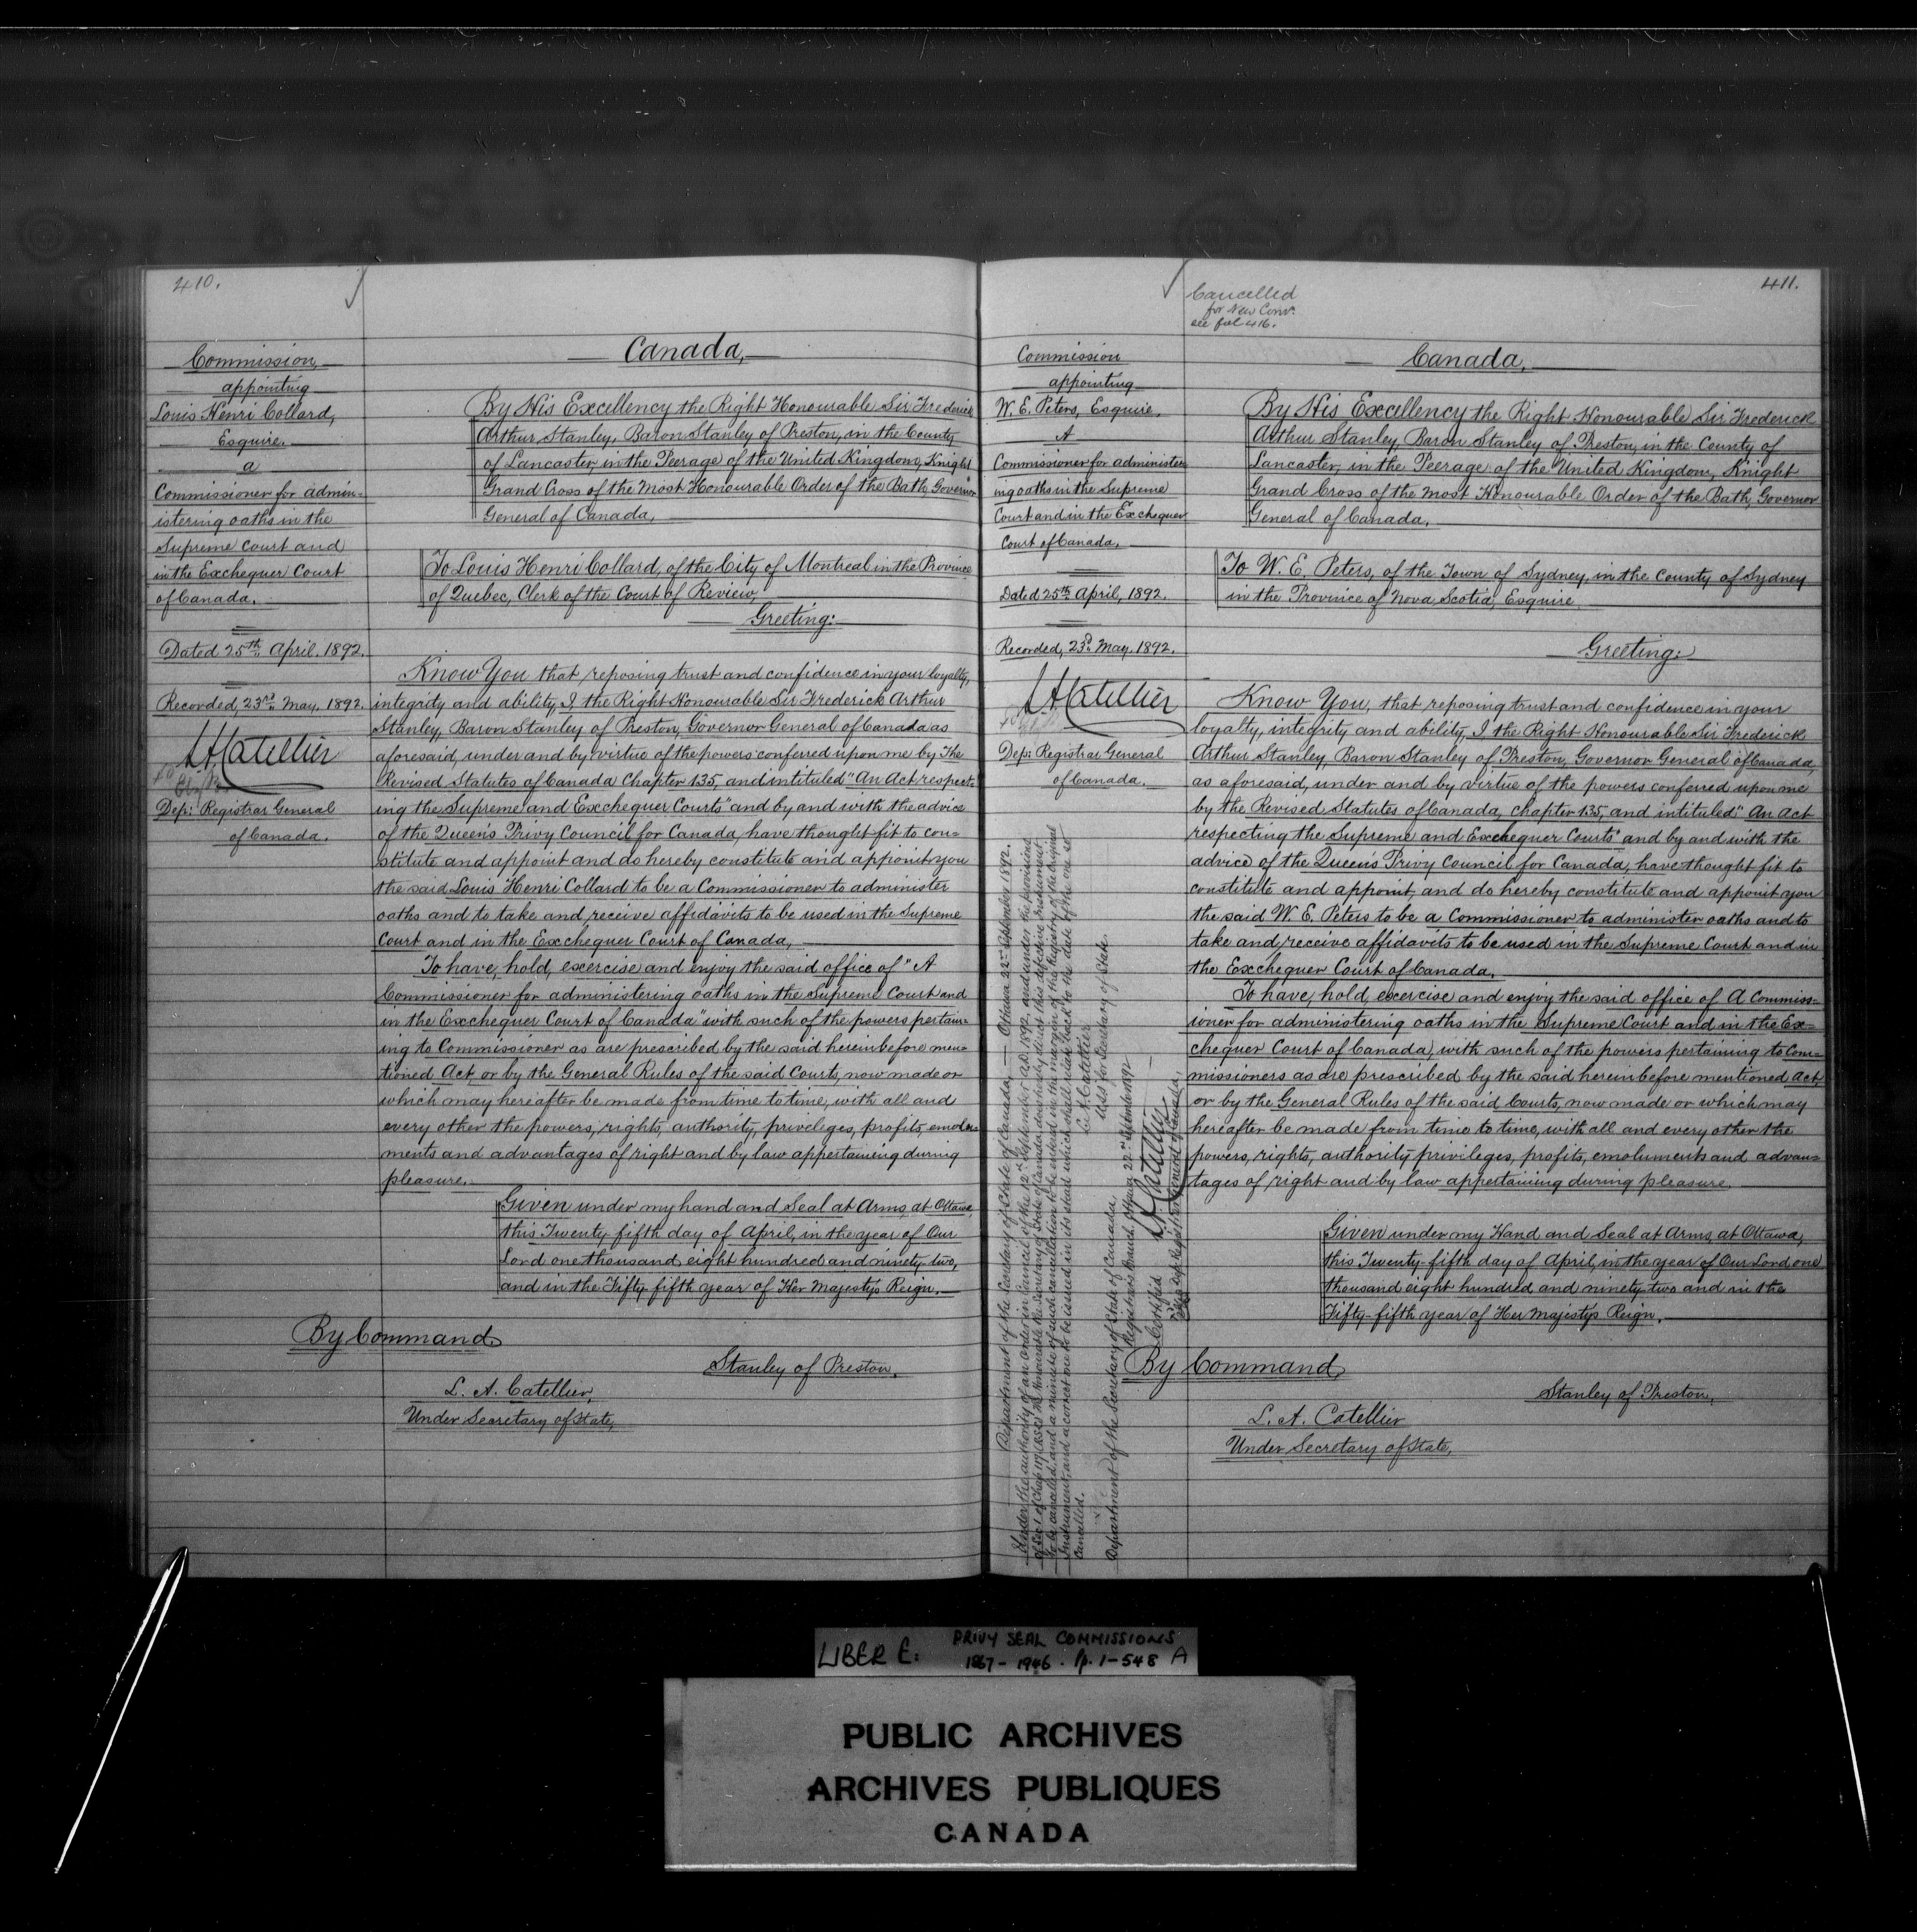 410.
Commission,
appointing
Louis Henri Collard,
Esquire.
a
Commissioner for admin=
istering oaths in the
Supreme Court and
in the Exchequer Court
of Canada.
Dated 25th April. 1892.
Recorded, 23rd May. 1892.
LACatellier
Dep: Registrar General
of Canada.
Canada,
By His Excellency the Right Honourable Sir Frederick
Arthur Stanley, Baron Stanley of Preston, in the County
of Lancaster, in the Peerage of the United Kingdom, Knight
Grand Cross of the Most Honourable Order of the Bath, Governor
General of Canada,
To Louis Henri Collard, of the City of Montreal in the Province
of Quebec, Clerk of the Court of Review,
Greeting:
Know You that reposing trust and confidence in your loyalty,
integrity and ability, I, the Right Honourable Sir Frederick Arthur
Stanley, Baron Stanley of Preston, Governor General of Canada as
aforesaid, under and by virtue of the powers conferred upon me by The
Revised Statutes of Canada Chapter 135, and intituled "An Act respect-
ing the Supreme and Exchequer Courts" and by and with the advice
of the Queen's Privy Council for Canada, have thought fit to con=
stitute and appoint and do hereby constitute and appoint you
the said Louis Henri Collard to be a Commissioner to administer
oaths and to take and receive affidavits to be used in the Supreme
Court and in the Exchequer Court of Canada,
To have, hold, exercise and enjoy the said office of "A
Commissioner for administering oaths in the Supreme Court and
in the Exchequer Court of Canada" with such of the powers pertain=
ing to Commissioner as are prescribed by the said hereinbefore men=
tioned Act, or by the General Rules of the said Courts, now made or
which may hereafter be made from time to time, with all and
every other the powers, rights, authority, priveleges, profits, emolu=
ments and advantages of right and by law appertaining during
pleasure.
Given under my hand and Seal at Arms, at Ottawa,
this Twenty fifth day of April, in the year of Our
Lord one thousand eight hundred and ninety two,
and in the Fifty fifth year of Her Majesty's Reign.
By Command
Stanley of Preston.
L. A. Catellier,
Under Secretary of State,
411.
Cancelled
for New Comn.
see fol 416.
Commission
appointing
W. E. Peters, Esquire.
A
Commissioner for administer
ing oaths in the Supreme
Court and in the Exchequer
Court of Canada.
Dated 25th April, 1892.
Recorded, 23d May. 1892.
LACatellier
Dep: Registrar General
of Canada.
Department of the Secretary of State of Canada, Ottawa 22nd September 1892.
Under the authority of an Order in Council of the 12th September A.D. 1892, and under the provisions
of the Secretary of State of Canada, doth hereby direct this defective Instrument
to be cancelled, and a minute of such cancellation to be entered in the margin of the Registry of the original
Instrument, and a correct one to be issued in its stead which shall relate back to the date of the one so
cancelled.
L. A. Catellier
Under Secretary of State.
Department of the Secretary of State of Canada
Registrar's Branch, Ottawa 22nd September 1892
Certified
LACatellier
Dep Registrar General of Canada.
Canada,
By His Excellency the Right Honourable Sir Frederick
Arthur Stanley, Baron Stanley of Preston, in the County of
Lancaster, in the Peerage of the United Kingdom, Knight
Grand Cross of the Most Honourable Order of the Bath, Governor
General of Canada,
To W. E. Peters, of the Town of Sydney, in the County of Sydney
in the Province of Nova Scotia, Esquire
Greeting:
Know You, that reposing trust and confidence in your
loyalty, integrity and ability, I the Right Honourable Sir Frederick
Arthur Stanley Baron Stanley of Preston, Governor General of Canada,
as aforesaid, under and by virtue of the powers conferred upon me
by the Revised Statutes of Canada, Chapter 135, and intituled "An Act
respecting the Supreme and Exchequer Courts" and by and with the
advice of the Queen's Privy Council for Canada, have thought fit to
constitute and appoint, and do hereby constitute and appoint you
the said W. E. Peters to be a Commissioner to administer oaths and to
take and receive affidavits to be used in the Supreme Court and in
the Exchequer Court of Canada.
To have, hold, exercise and enjoy the said office of A Commiss=
ioner for administering oaths in the Supreme Court and in the Ex=
chequer Court of Canada, with such of the powers pertaining to Com=
missioners as are prescribed by the said hereinbefore mentioned Act,
or by the General Rules of the said Courts, now made or which may
hereafter be made from time to time, with all and every other the
powers, rights, authority privileges, profits, emoluments and advan=
tages of right and by law appertaining during pleasure.
Given under my Hand and Seal at Arms, at Ottawa,
this Twenty-fifth day of April, in the year of Our Lord one
thousand eight hundred and ninety two and in the
Fifty-fifth year of Her Majesty's Reign.
By Command,
Stanley of Preston,
L. A. Catellier
Under Secretary of State,
LIBER E: PRIVY SEAL COMMISSIONS
1867-1946. Pp. 1-548 A
PUBLIC ARCHIVES
ARCHIVES PUBLIQUES
CANADA